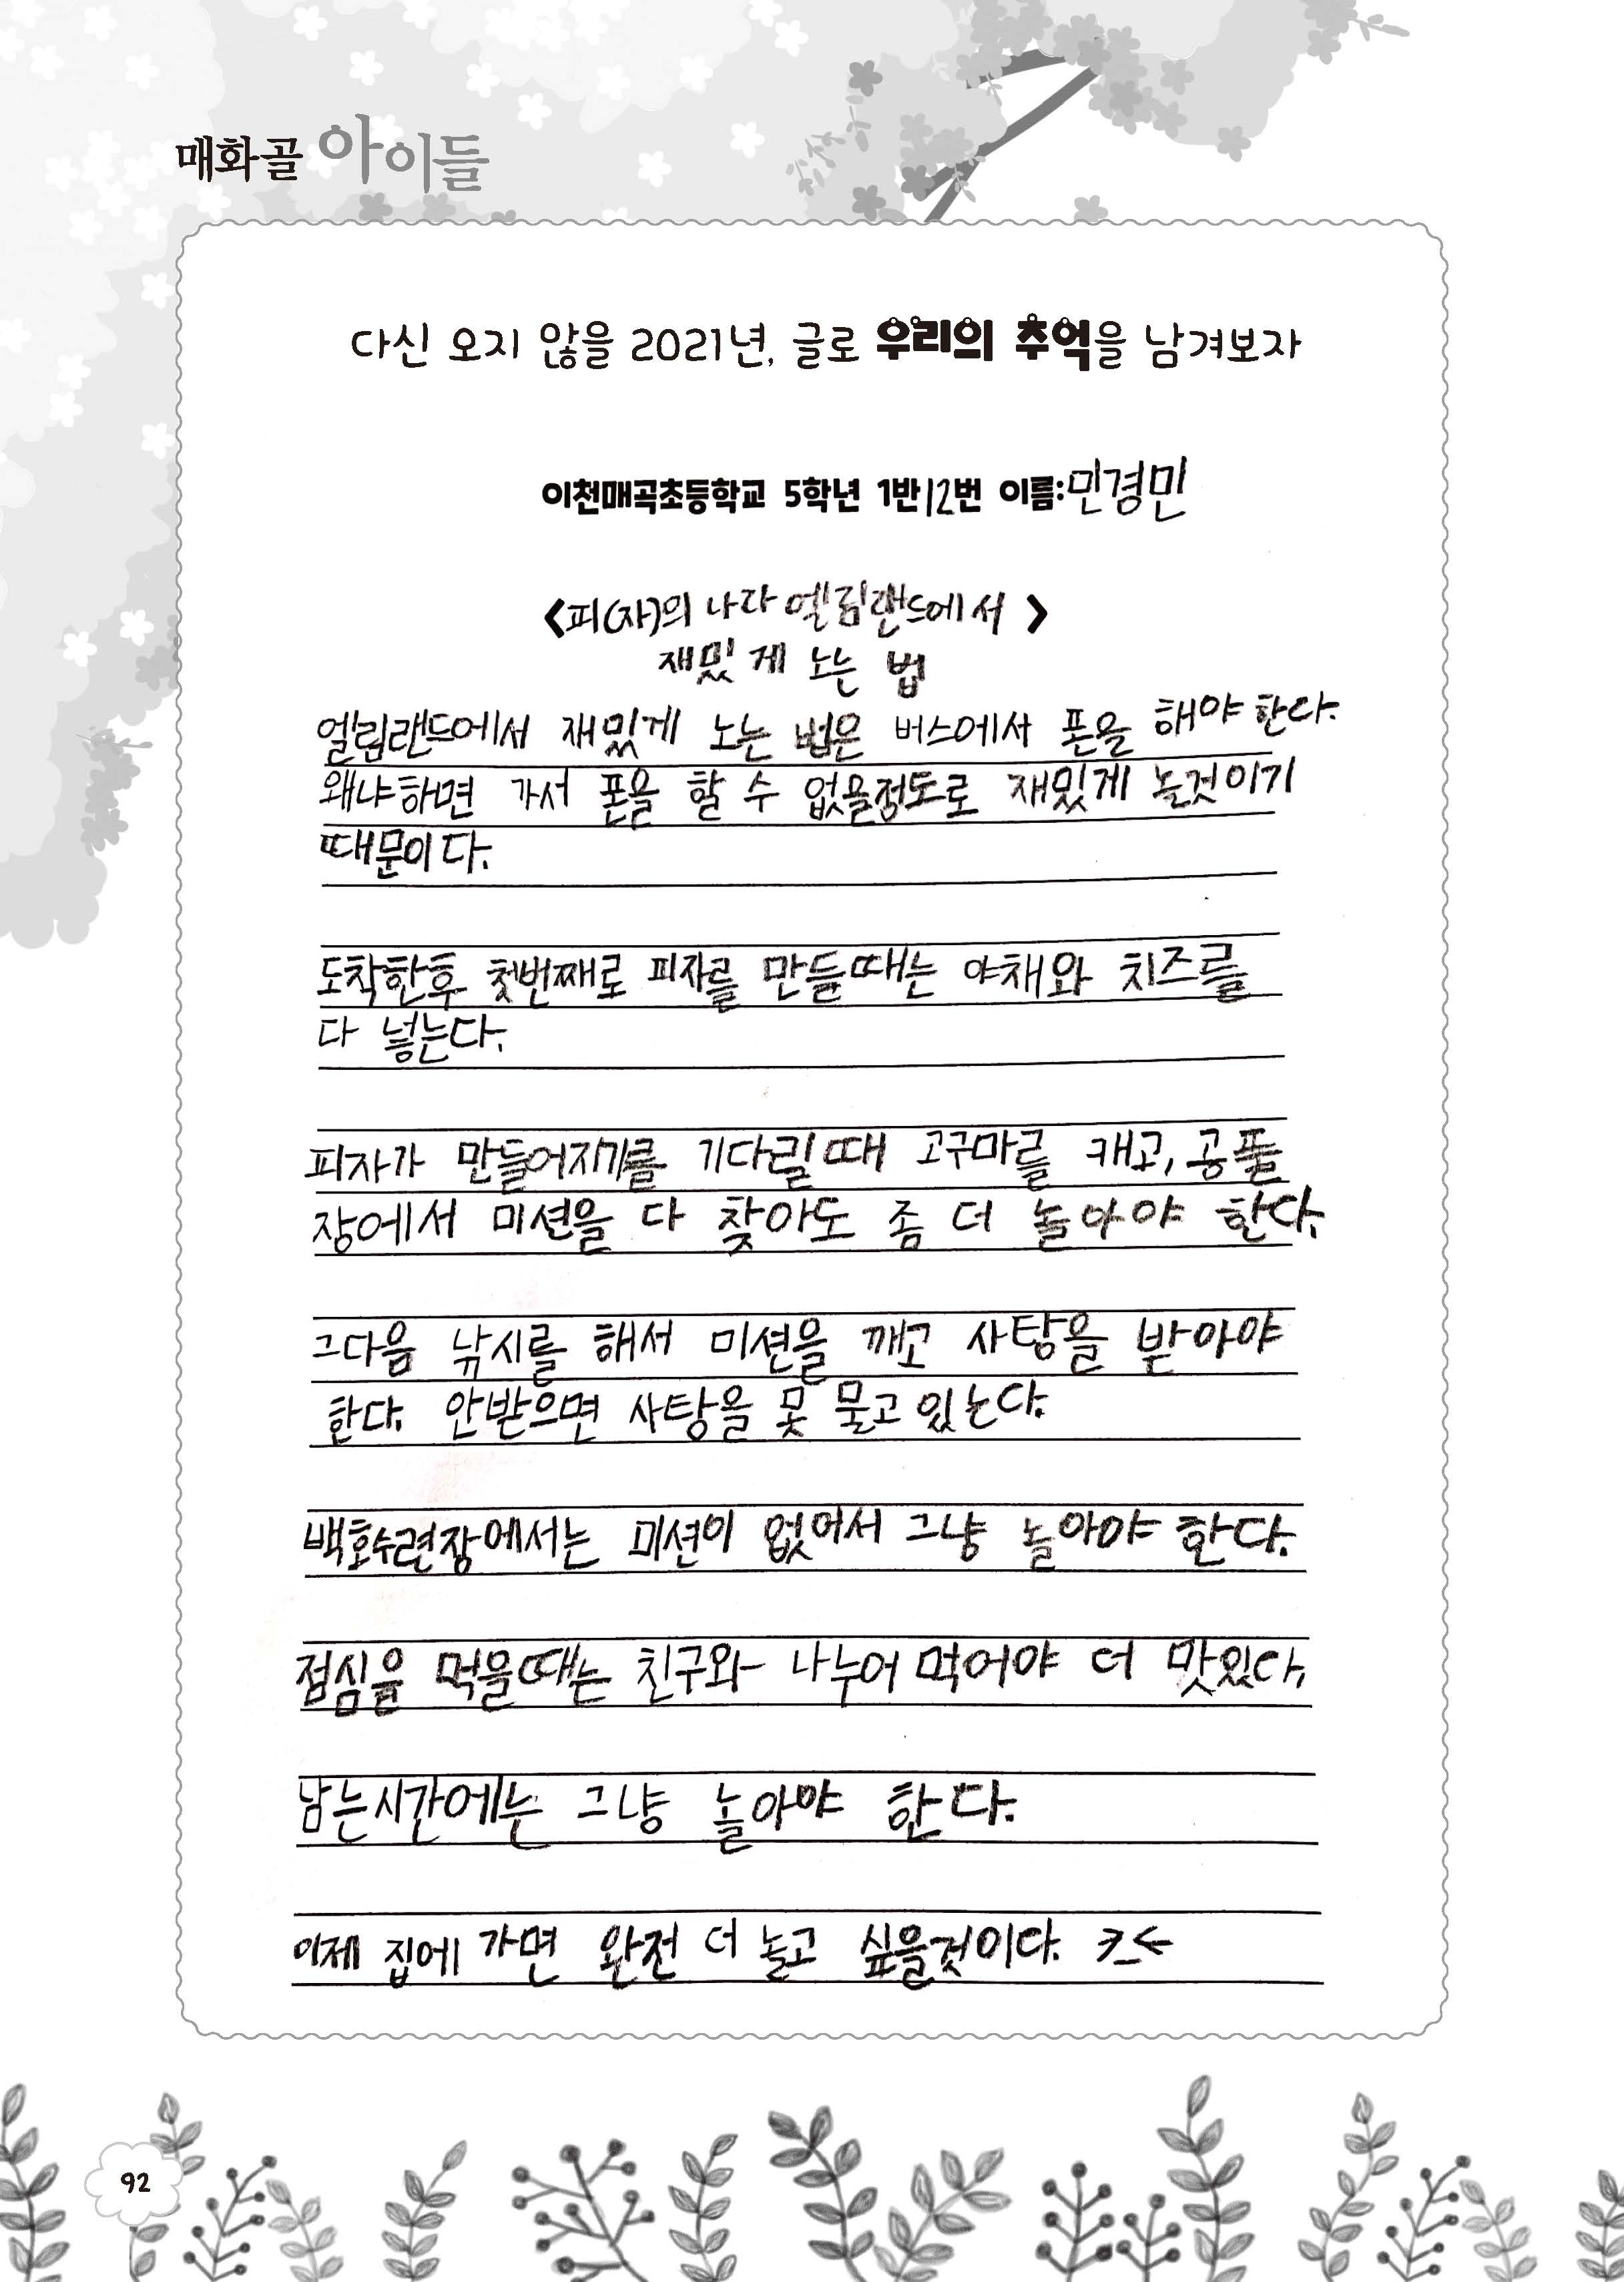 매화골 아이들
다신 오지 않을 2021년, 글로 우리의 추억을 남겨보자
이천매곡초등학교 5학년 1반 12번 이름: 민경민
<피(자)의 나라 엘림랜드에서>
재밌게 노는 법
엘림랜드에서 재밌게 노는 법은 버스에서 폰을 해야 한다.
왜냐하면 가서 폰을 할 수 없을정도로 재밌게 놀것이기
때문이다.
도착한후 첫번째로 피자를 만들때는 야채와 치즈를
다 넣는다.
피자가 만들어지기를 기다릴때 고구마를 캐고, 공풀
장에서 미션을 다 찾아도 좀 더 놀아야 한다.
그다음 낚시를 해서 미션을 깨고 사탕을 받아야
한다. 안받으면 사탕을 못 물고 있는다.
백호수련장에서는 미션이 없어서 그냥 놀아야 한다.
점심을 먹을때는 친구와 나누어 먹어야 더 맛있다.
남는시간에는 그냥 놀아야 한다.
이제 집에 가면 완전 더 놀고 싶을것이다.
92